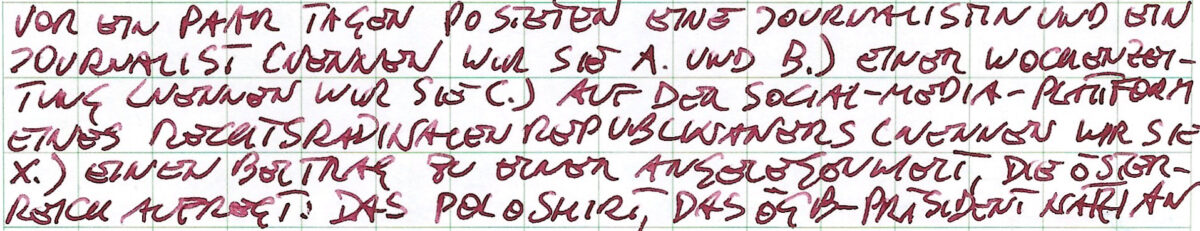 VOR EIN PAAR TAGEN POSTETEN EINE JOURNALISTIN UND EIN
JOURNALIST (NENNEN WIR SIE A. UND B.) EINER WOCHENZEI-
TUNG (NENNEN WIR SIE C.) AUF DER SOCIAL-MEDIA-PLATTFORM
EINES RECHTSRADIKALEN REPUBLIKANERS (NENNEN WIR SIE
X.) EINEN BEITRAG ZU EINER ANGELEGENHEIT, DIE ÖSTER-
REICH AUFREGT: DAS POLOSHIRT, DAS ÖGB-PRÄSIDENT KATZIAN